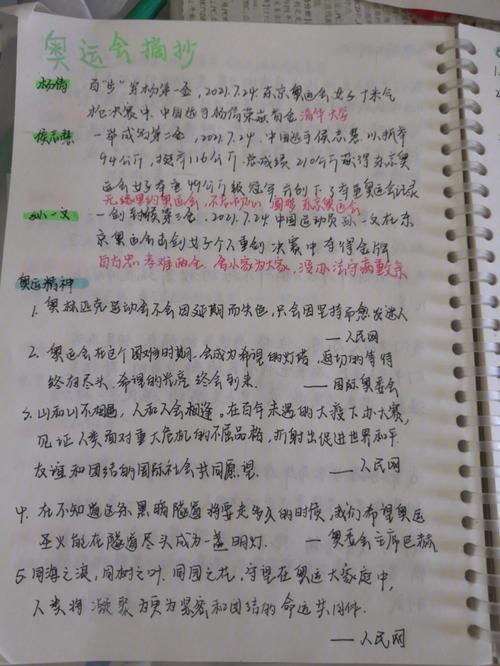 奥运会摘抄
杨倩 百"步"穿杨第一金，2021.7.24 东京奥运会女子十米气
枪决赛中，中国选手杨倩荣获首金 清华大学
侯志慧 一举成功第二金，2021.7.24，中国选手侯志慧以抓举
94公斤，挺举116公斤，总成绩210公斤获得东京奥
运会女子举重49公斤级冠军并创下了举重奥运会记录
无缘里约奥运会，不忘初心，圆梦东京奥运会
孙一文 一剑封喉第三金，2021.7.24 中国运动员孙一文在东
京奥运会击剑女子个人重剑决赛中夺得金牌
自古忠孝难两全，舍小家为大家，没办法守病重父亲
奥运精神
1. 奥林匹克运动会不会因延期而失色，只会因坚持而愈发迷人
——人民网
2. 奥运会在这个困难时期，会成为希望的灯塔，迫切的等待
终有尽头，希望的光亮终会到来. ——国际奥委会
3. 山和山不相遇，人和人会相逢。在百年未遇的大疫下办大赛，
见证人类面对重大危机的不屈品格，折射出促进世界和平
友谊和团结的国际社会共同愿望. ——人民网
4. 在不知道这条黑暗隧道将要走多久的时候，我们希望奥运
圣火能在隧道尽头成为一盏明灯. —奥委会主席巴赫
5. 同海之浪，同树之叶，同园之花，守望在奥运大家庭中，
人类将凝聚为更为紧密和团结的命运共同体.
——人民网